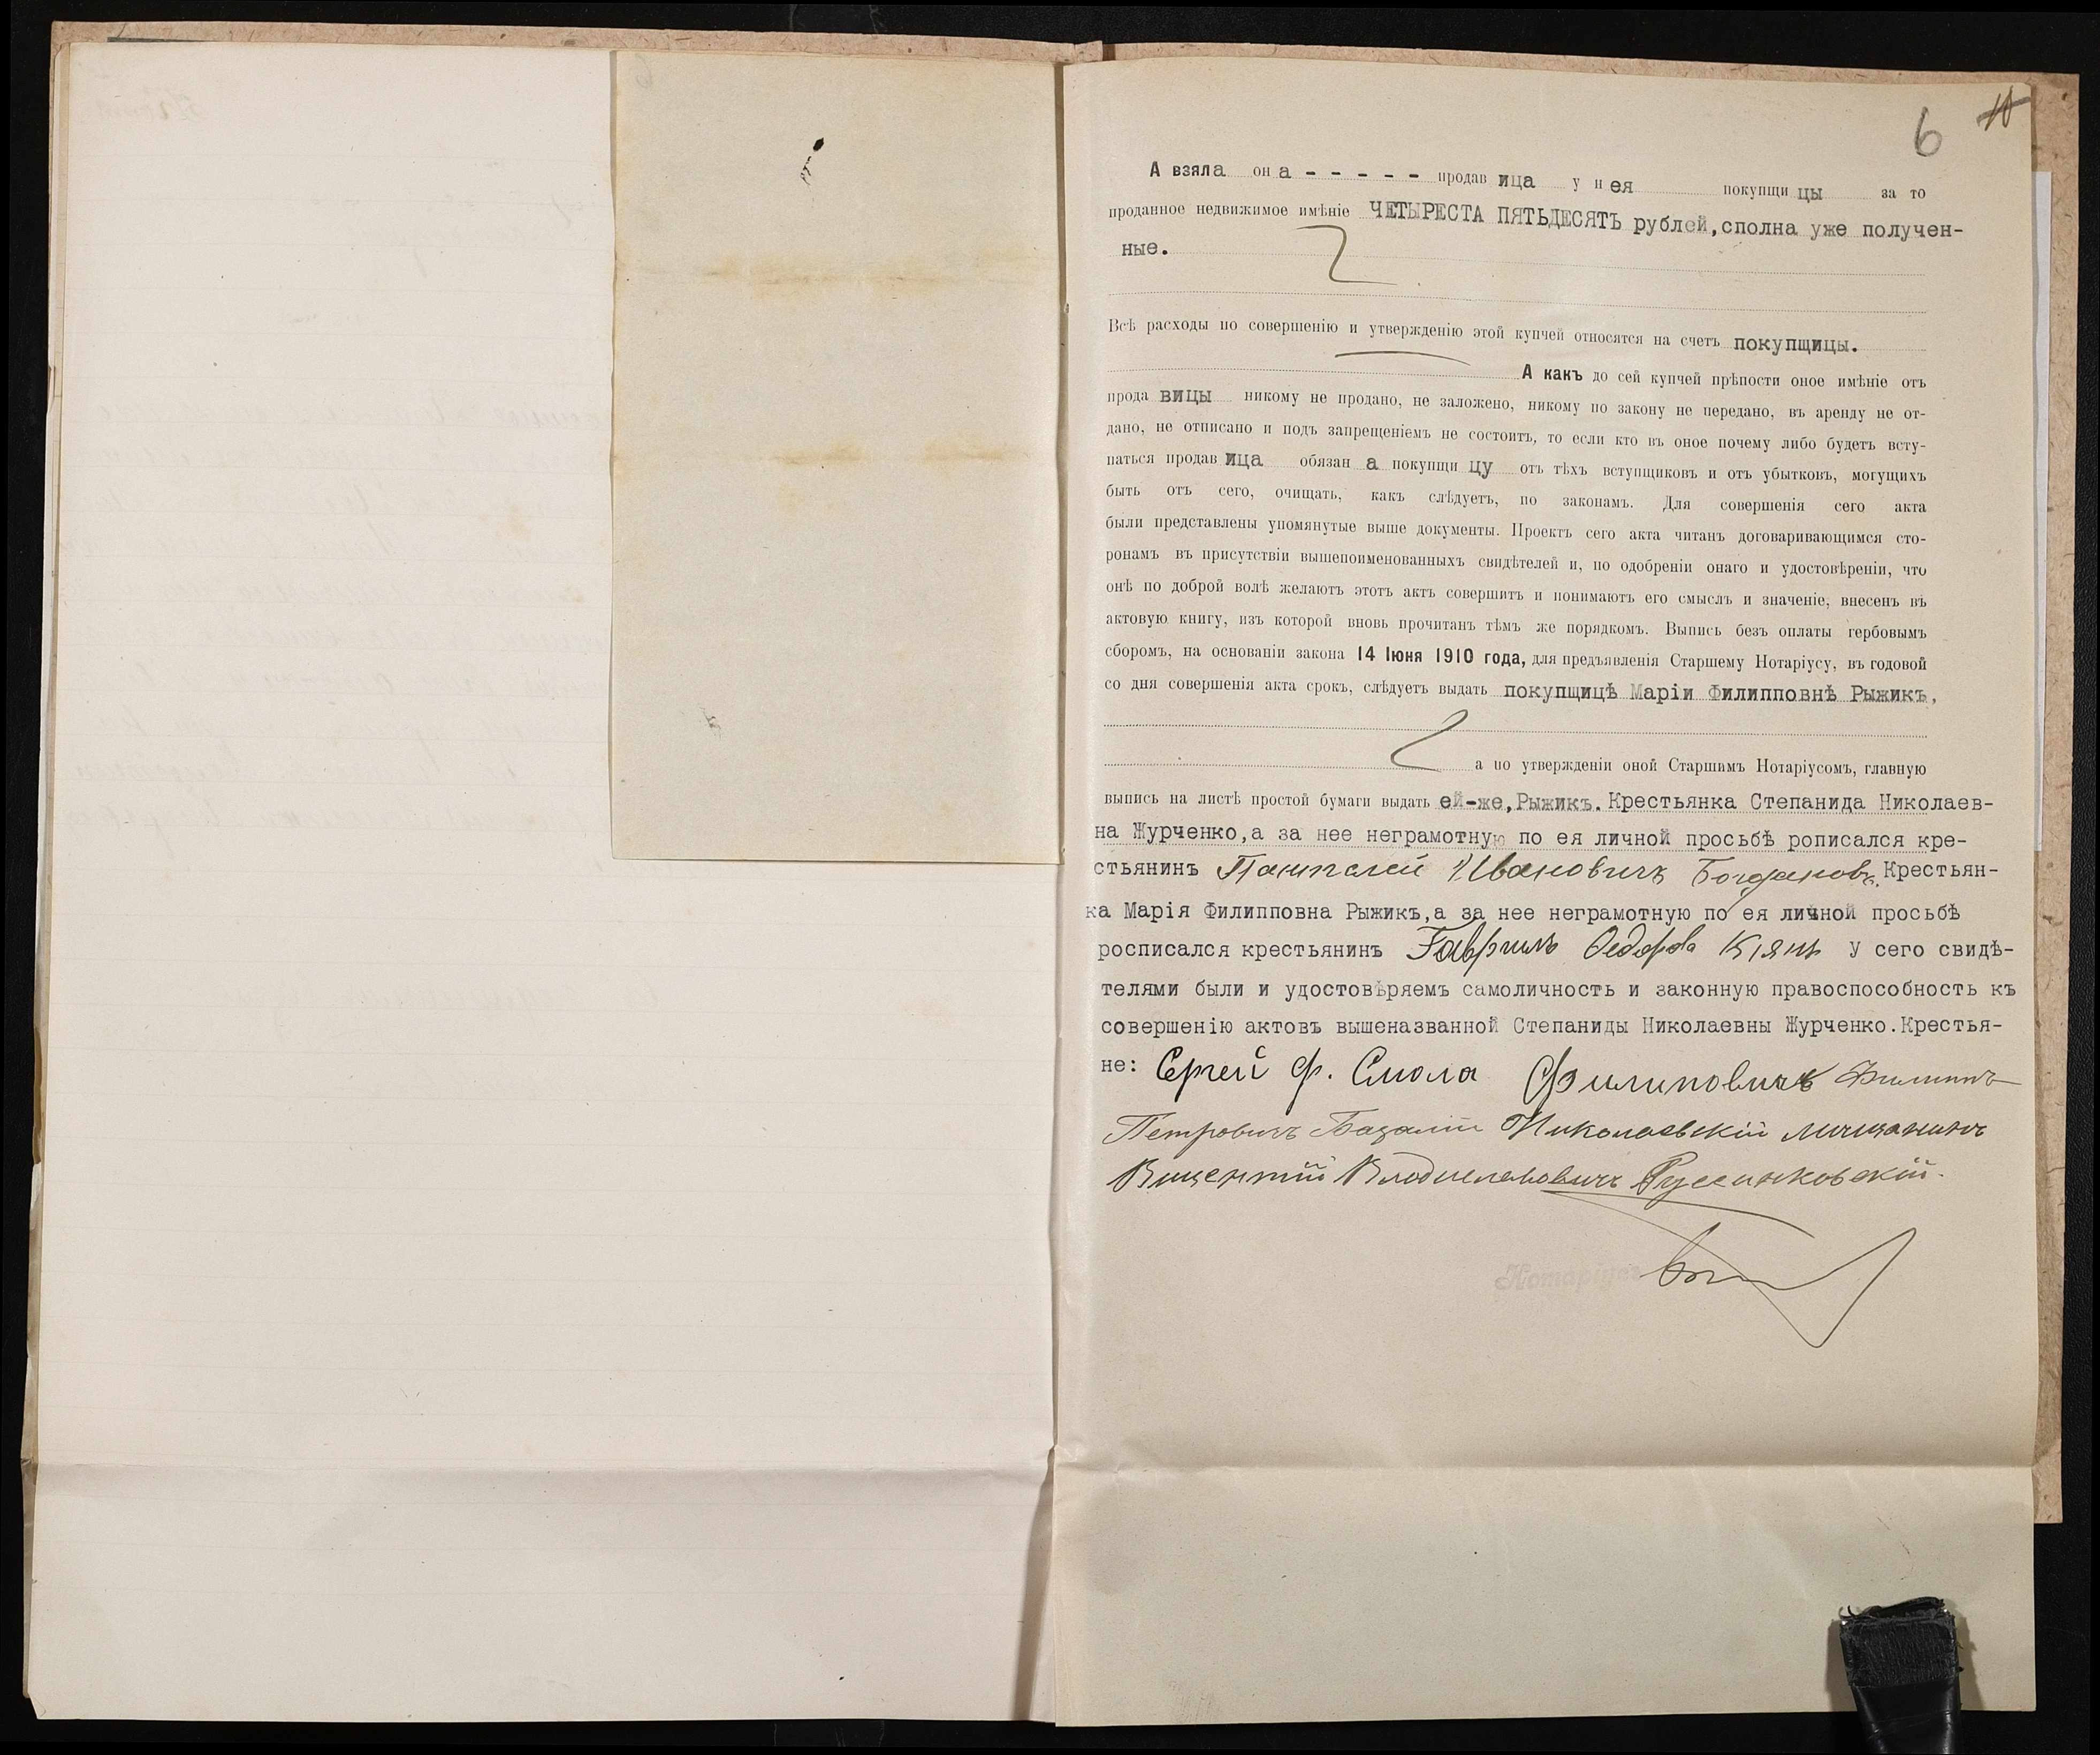 6 10
А взяла она - - - - - продавица у нея покупщицы за то
проданное недвижимое имѣніе ЧЕТЫРЕСТА ПЯТЬДЕСЯТЬ рублей,сполна уже получен-
ные.
Всѣ расходы по совершенію и утвержденію этой купчей относятся на счетъ покупщицы.
А какъ до сей купчей прѣпости оное имѣніе отъ
прода вицы никому не продано, не заложено, никому по закону не передано, въ аренду не от-
дано, не отписано и подъ запрещеніемъ не состоитъ, то если кто въ оное почему либо будетъ всту-
паться продавица обязана покупщицу отъ тѣхъ вступщиковъ и отъ убытковъ, могущихъ
быть отъ сего, очищать, какъ слѣдуетъ, по законамъ. Для совершенія сего акта
были представлены упомянутые выше документы. Проектъ сего акта читанъ договаривающимся сто-
ронамъ въ присутствіи вышепоименованныхъ свидѣтелей и, по одобреніи онаго и удостовѣреніи, что
онѣ по доброй волѣ желаютъ этотъ актъ совершить и понимаютъ его смыслъ и значеніе, внесенъ въ
актовую книгу, изъ которой вновь прочитанъ тѣмъ же порядкомъ. Выпись безъ оплаты гербовымъ
сборомъ, на основаніи закона 14 Іюня 1910 года, для предъявленія Старшему Нотаріусу, въ годовой
со дня совершенія акта срокъ, слѣдуетъ выдать покупщицѣ Маріи Филипповнѣ Рыжикъ,
а по утвержденіи оной Старшимъ Нотаріусомъ, главную
выпись на листѣ простой бумаги выдать ей-же,Рыжикъ.Крестьянка Степанида Николаев-
на Журченко,а за нее неграмотную по ея личной просьбѣ рописался кре-
стьянинъ Пантелей Ивановичъ Богдановъ.Крестьян-
ка Марія Филипповна Рыжикъ,а за нее неграмотную по ея личной просьбѣ
росписался крестьянинъ Гавриилъ Федорова Кіянъ У сего свидѣ-
телями были и удостовѣряемъ самоличность и законную правоспособность къ
совершенію актовъ вышеназванной Степаниды Николаевны Журченко.Крестья-
не: Сергей Ф. Смола Филиповичъ Филиппъ
Петровичъ Базалій Николаевскій мѣщанинъ
Викентій Владиславовичъ Руссинковскій.
Нотаріусъ